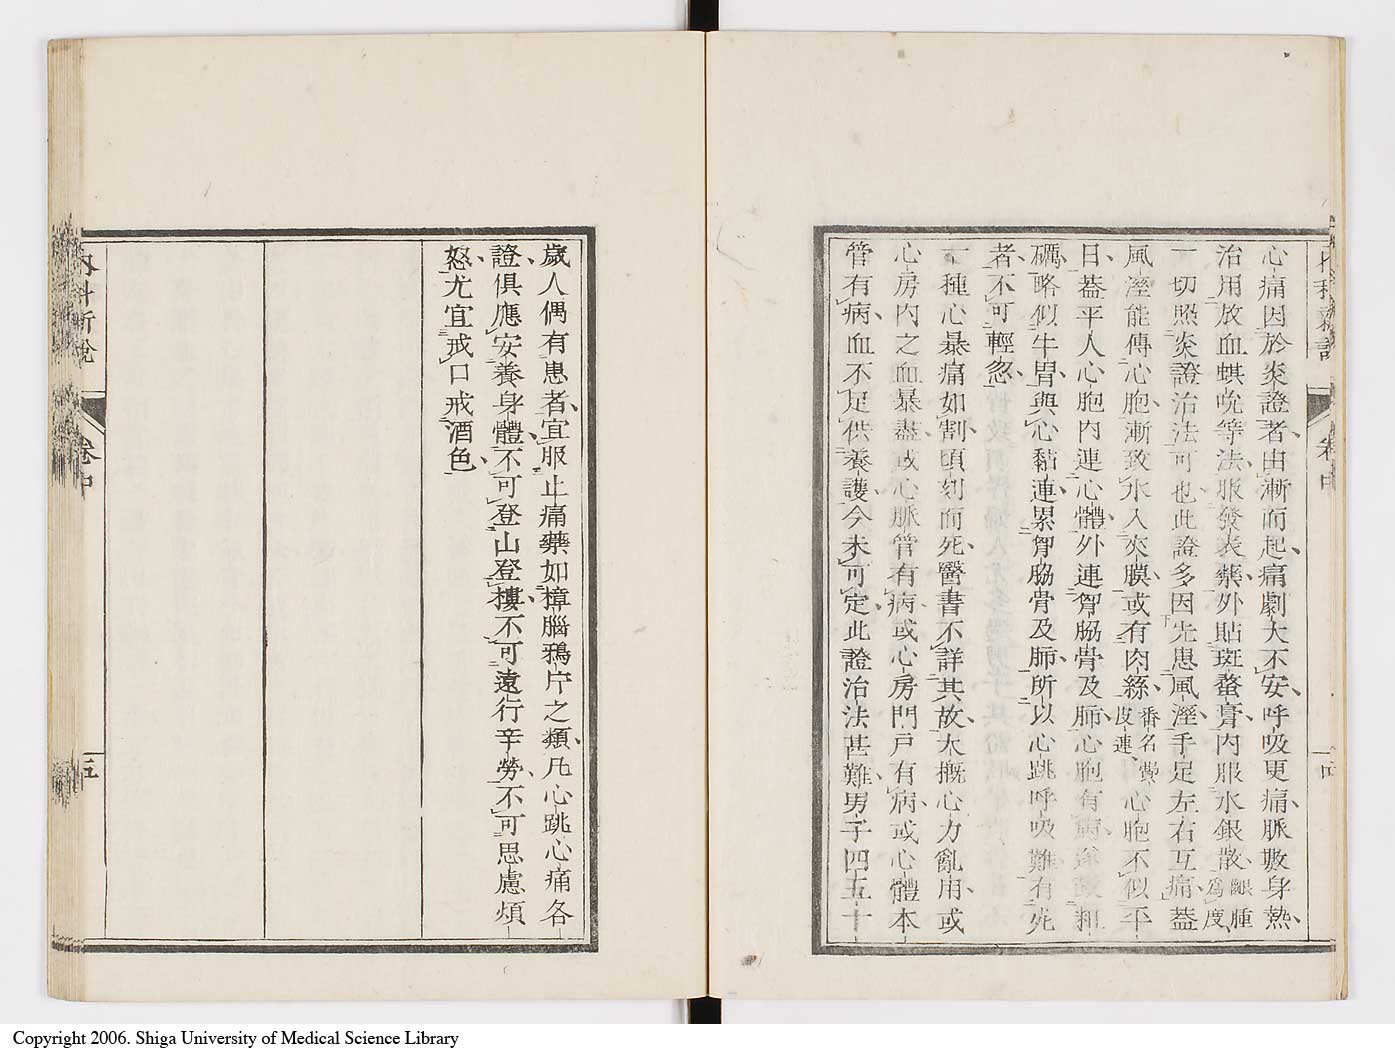 心痛因於炎證者由漸而起痛劇大不安呼吸更痛脈數身熱
治用放血蜞吮等法服發表藥外貼斑蝥膏內服水銀散齦腫爲度
一切照炎證治法可也此證多因先患風溼手足左右互痛蓋
風溼能傳心胞漸致水入夾膜或有肉絲番名𡚁皮連心胞不似平
日蓋平人心胞內連心體外連胷脇骨及肺心胞有病遂皺粗
礪略似牛胃與心黏連累胷脇骨及肺所以心跳呼吸難有死
者不可輕忽
一種心暴痛如割頃刻而死醫書不詳其故大概心力亂用或
心房內之血暴盡或心脈管有病或心房門戶有病或心體本
管有病血不足供養護今未可定此證治法甚難男子四五十
內科新說 卷中
歲人偶有患者宜服止痛藥如樟腦鴉片之類凡心跳心痛各
證俱應安養身體不可登山登樓不可遠行辛勞不可思慮煩
怒尤宜戒口戒酒色
內科新說 卷中 五
Copyright 2006. Shiga University of Medical Science Library